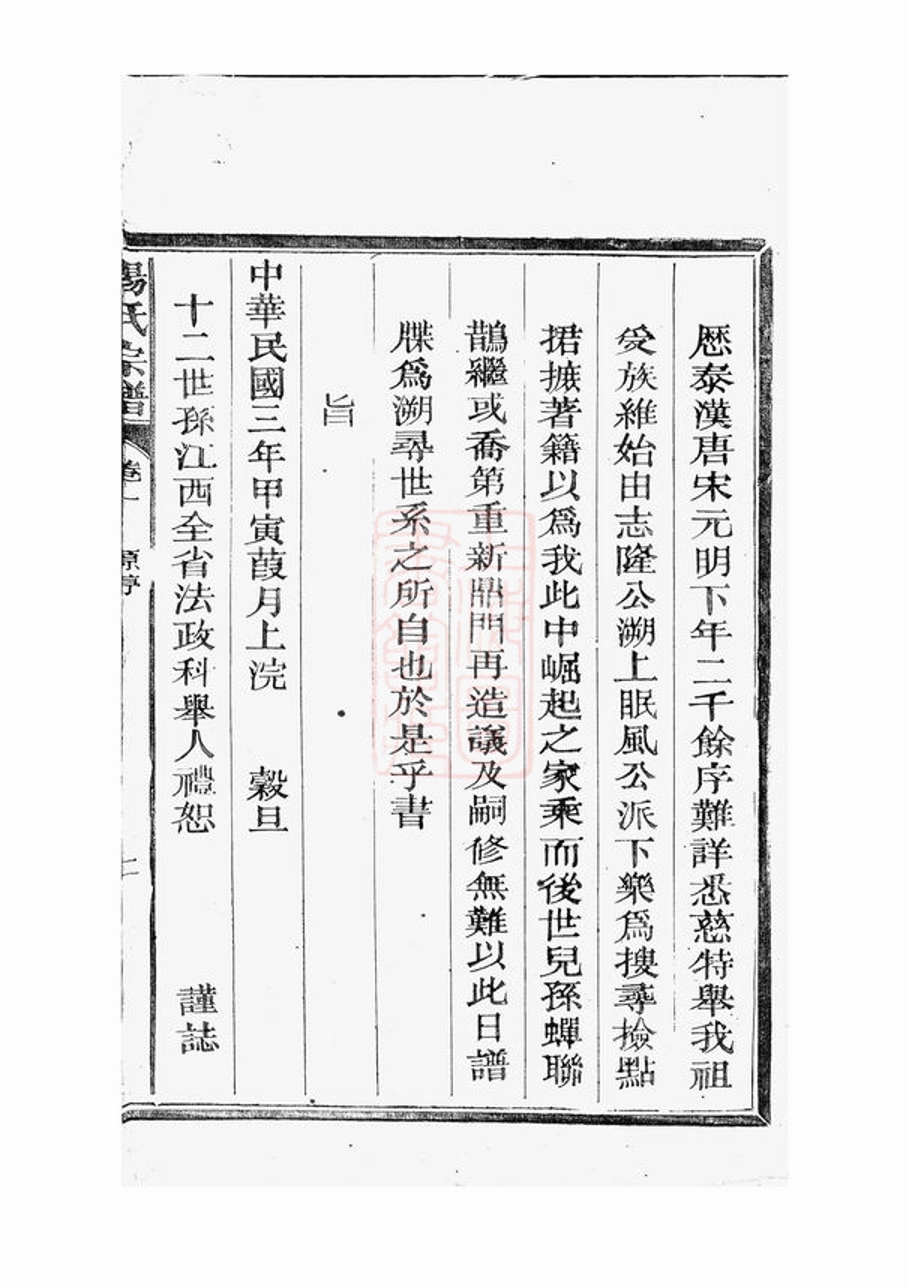 歷泰漢唐宋元明下年二千餘序難詳悉慈特舉我祖
受族維始由志隆公溯上眠風公派下樂爲搜尋撿點
捃摭著籍以爲我此中崛起之家乘而後世兒孫蟬聯
鵲繼或喬第重新鼎門再造議及嗣修無難以此日譜
牒爲溯尋世系之所自也於是乎書
旨
中華民國三年甲寅葭月上浣 穀旦
十二世孫江西全省法政科舉人禮恕 謹誌
楊氏宗譜 卷一